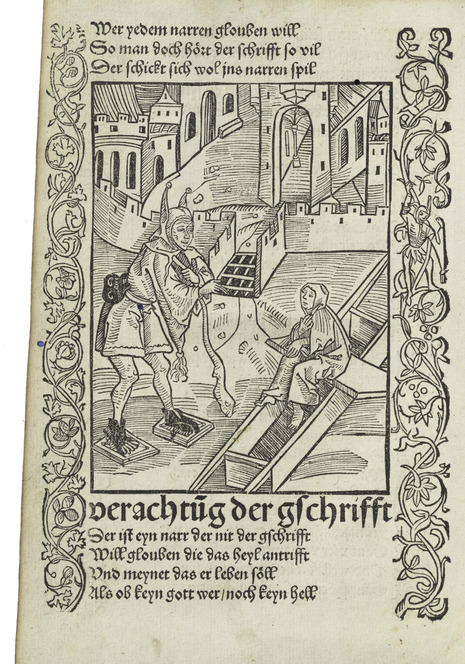 Wer yedem narren glouben will
So man doch hört der schrifft so vil
Der schickt sich wol jns narren spil
verachtūg der gschrifft
Der ist eyn narr der nit der gschrifft
Will glouben die das heyl antrifft
Vnd meynet das er leben söll
Als ob keyn gott wer/noch keyn hell